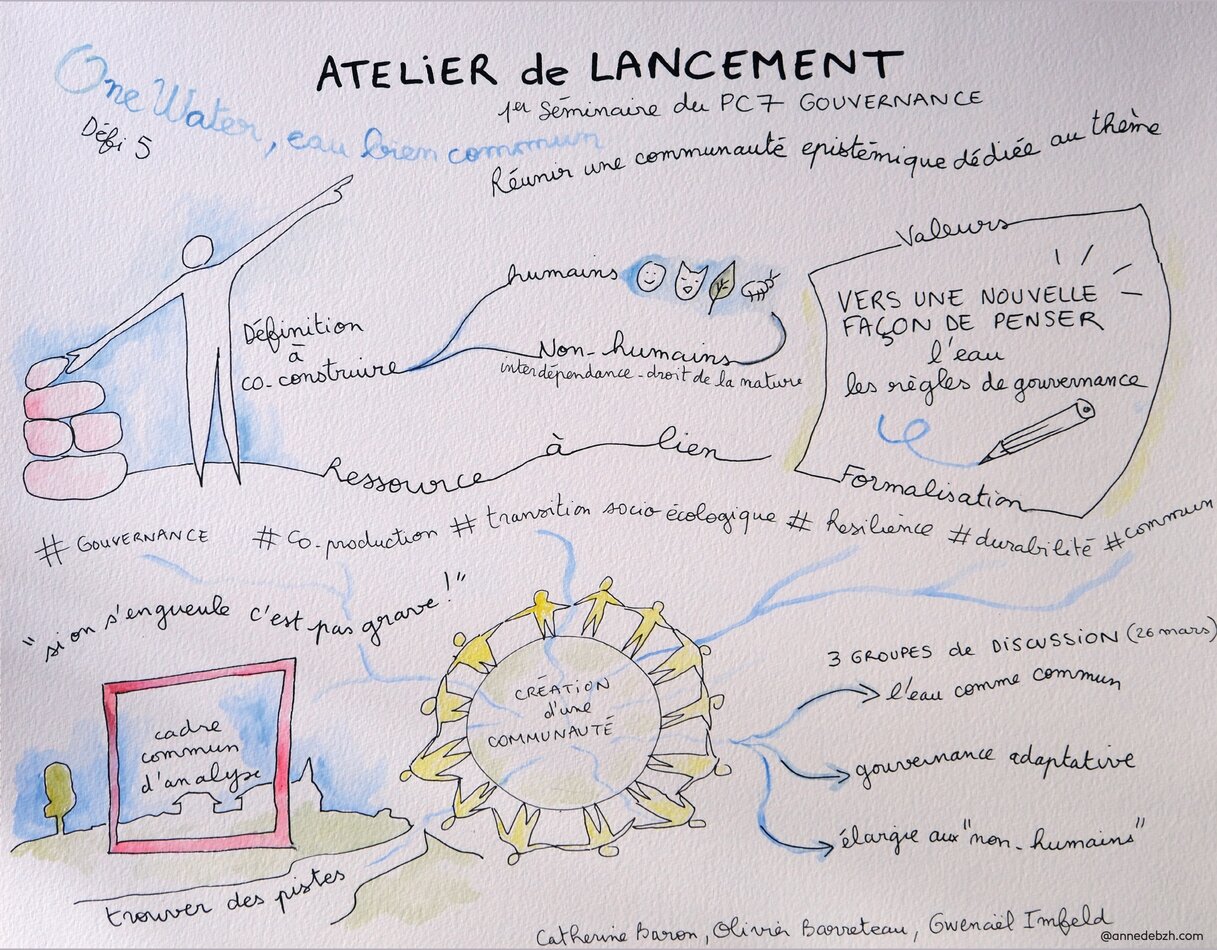 One Water, eau bien commun
Défi 5
ATELIER de LANCEMENT
1er Séminaire du PC7 GOUVERNANCE
Réunir une communauté epistémique dédiée au thème
Définition
à
co-construire
humains
Non-humains
interdépendance - droit de la nature
Ressource à lien
Valeurs
VERS UNE NOUVELLE
FAÇON DE PENSER
l'eau
les règles de gouvernance
Formalisation
# GOUVERNANCE # Co-production # transition socio-écologique # Résilience # durabilité # commun
"si on s'engueule c'est pas grave!"
cadre
commun
d'analyse
trouver des pistes
CRÉATION
d'une
COMMUNAUTÉ
3 GROUPES de DISCUSSION (26 mars)
l'eau comme commun
gouvernance adaptative
élargie aux "non-humains"
Catherine Baron, Olivier Barreteau, Gwenaël Imfeld
@annedebzh.com